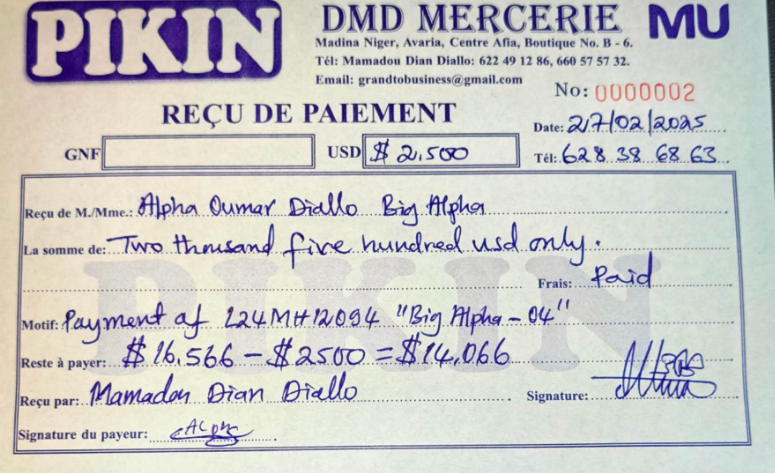 PIKIN
DMD MERCERIE MU
Madina Niger, Avaria, Centre Afia, Boutique No. B - 6.
Tél: Mamadou Dian Diallo: 622 49 12 86, 660 57 57 32.
Email: grandtobusiness@gmail.com
No: 0000002
REÇU DE PAIEMENT
Date: 27/02/2025
GNF USD $ 2.500 Tél: 628 38 68 63
Reçu de M./Mme.: Alpha Oumar Diallo Big Alpha
La somme de: Two thousand five hundred usd only.
Frais: Paid
Motif: Payment of L24MH12094 "Big Alpha - 04"
Reste à payer: $ 16.566 - $ 2500 = $ 14.066
Reçu par: Mamadou Dian Diallo Signature:
Signature du payeur: Alpha
PIKIN